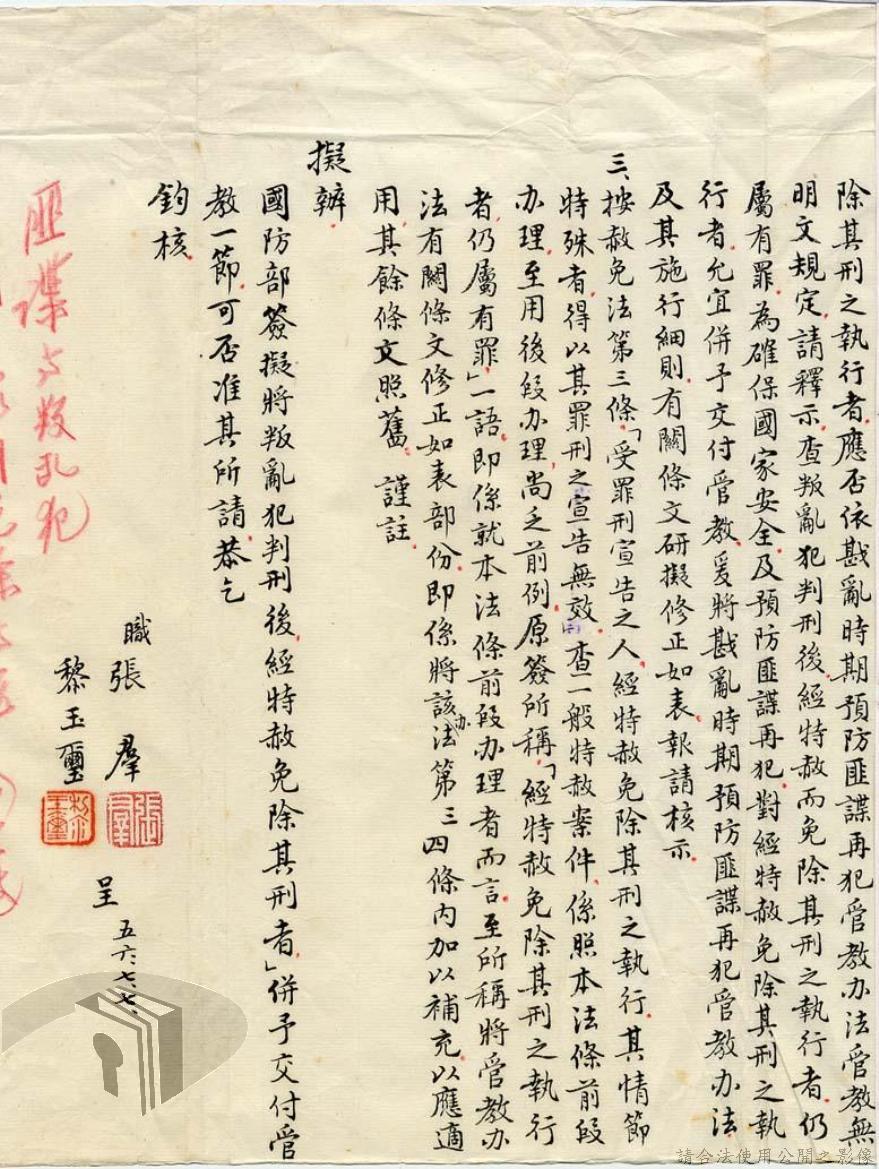 除其刑之執行者，應否依戡亂時期預防匪諜再犯管教办法管教無
明文規定，請釋示。查叛亂犯判刑後，經特赦而免除其刑之執行者，仍
屬有罪，為確保國家安全，及預防匪諜再犯，對經特赦免除其刑之執
行者，允宜併予交付管教，爰將戡亂時期預防匪諜再犯管教办法
及其施行細則，有關條文研擬修正如表，報請核示。
三、按赦免法第三條「受罪刑宣告之人，經特赦免除其刑之執行，其情節
特殊者，得以其罪刑之宣告無效」，查一般特赦案件，係照本法條前段
办理，至用後段办理，尚乏前例，原簽所稱「經特赦免除其刑之執行
者，仍屬有罪」一語，即係就本法條前段办理者而言，至所稱將管教办
法有關條文修正如表部份，即係將該办法第三四條內加以補充，以應適
用，其餘條文照舊。謹註。
擬辦
國防部簽擬將叛亂犯判刑後，經特赦免除其刑者，「併予交付管
教一節，可否准其所請，恭乞
鈞核。
職張羣
黎玉璽
呈 五六、七、七、
匪諜與叛亂犯
請合法使用公開之影像